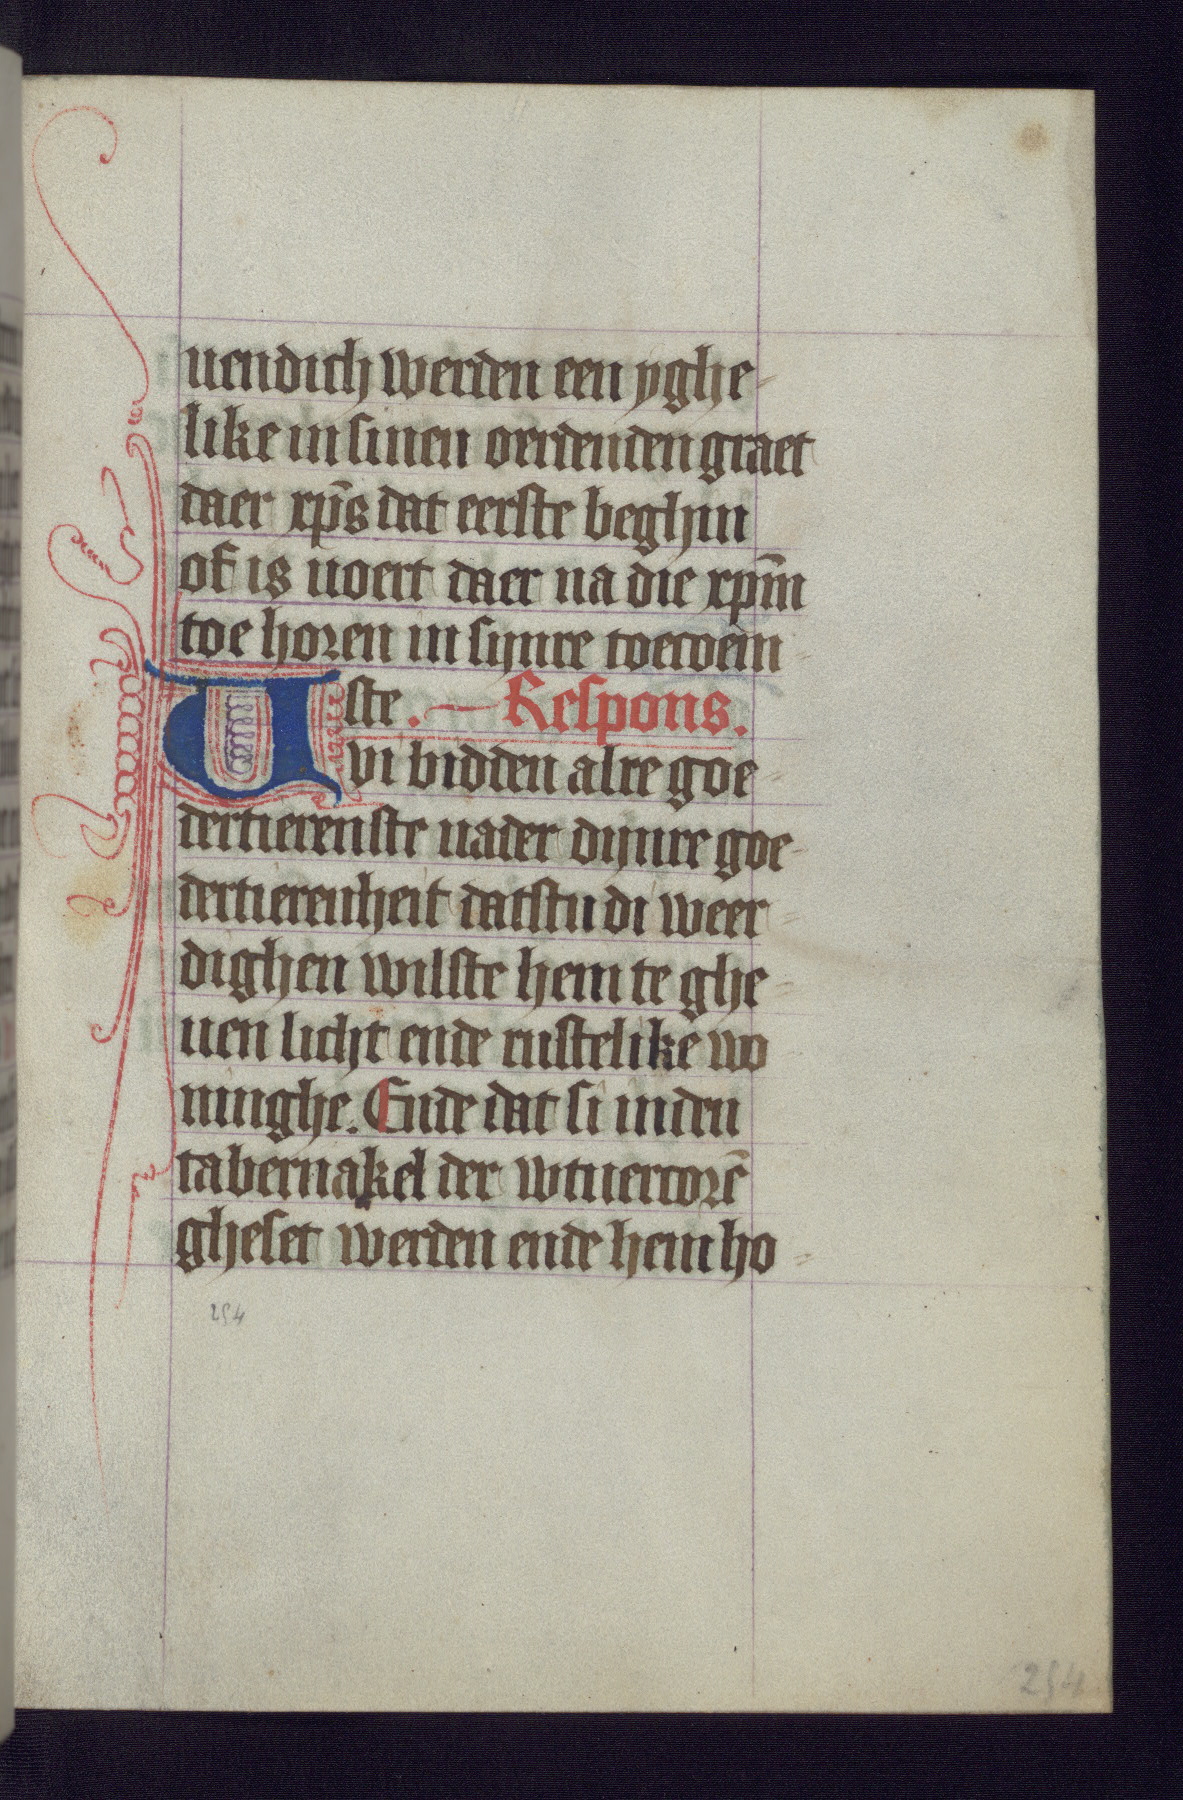 uendich werden een yghe
like in sinen oerdenden graet
daer xp̄s dat eerste beghin
of is uoert daer na die xp̄m
toe horen in sijnre toecoem
ste. Respons.
Wi bidden alre goe
dertierenste uader dijnre goe
dertierenheit datstu di weer
dighen wilste hem te ghe
uen licht ende rustelike wo
ninghe. Ende dat si in den
tabernakel der wtuercorē
gheset werden ende hem ho
254
254